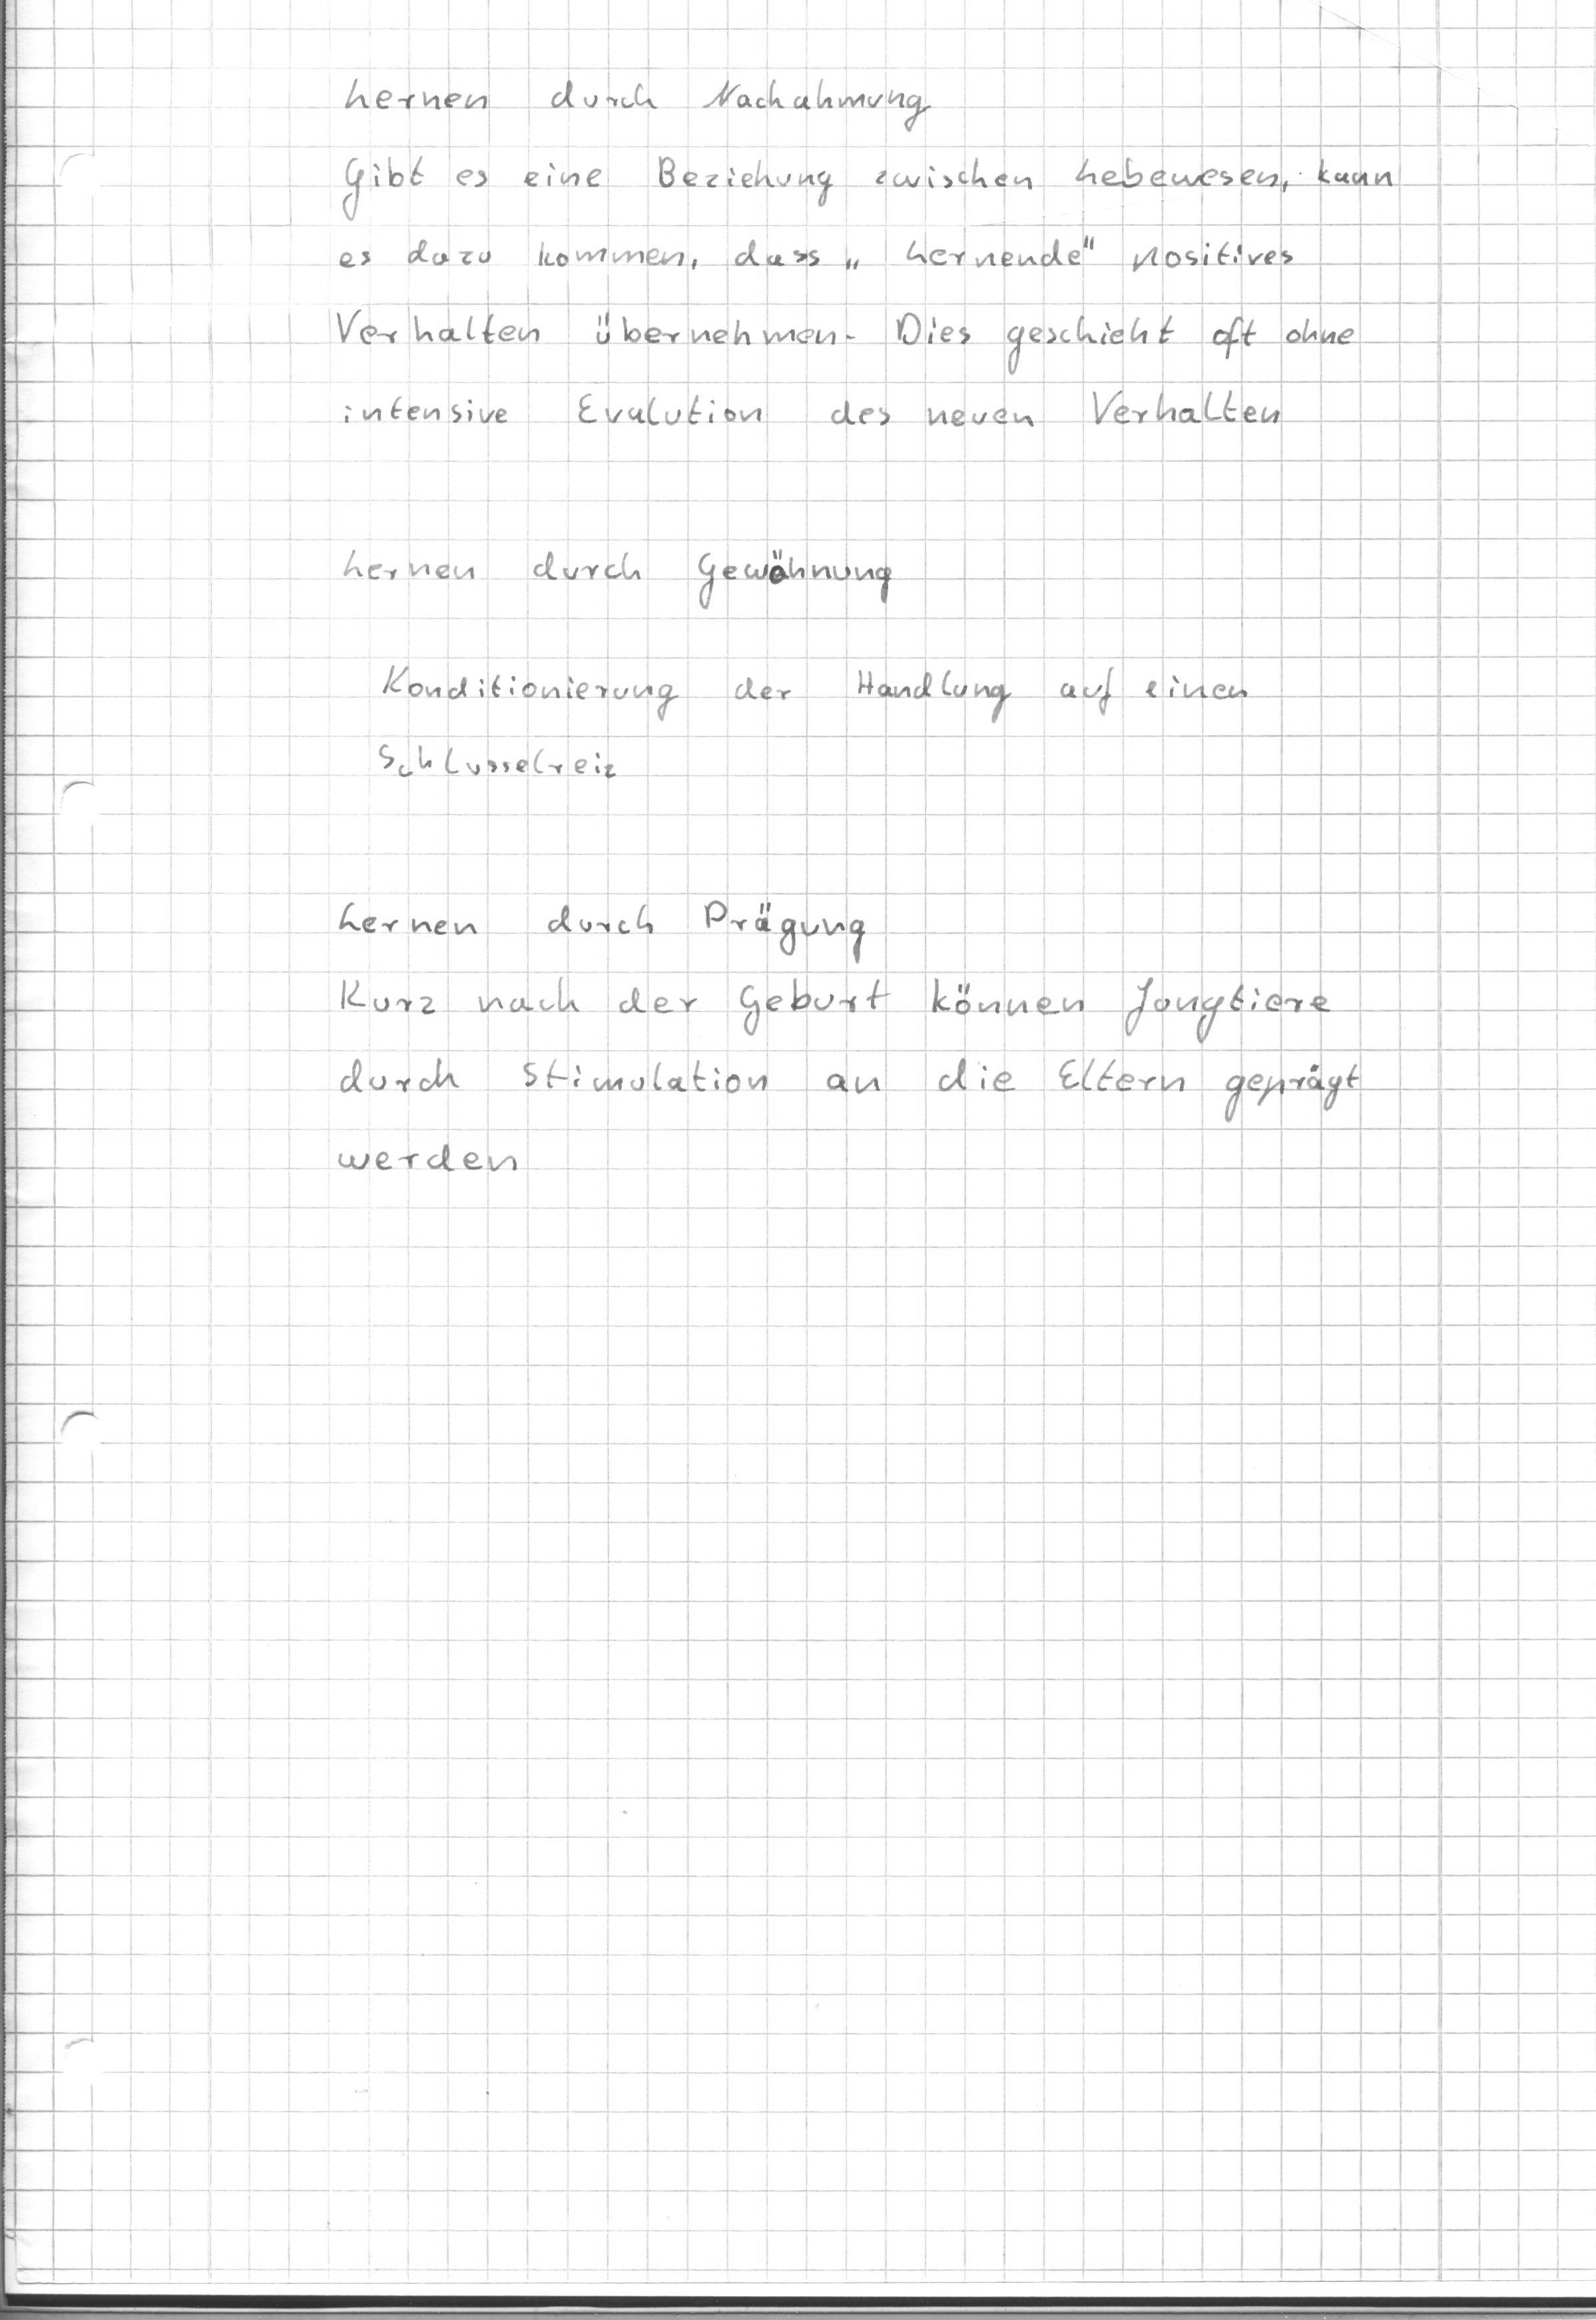 Lernen durch Nachahmung
Gibt es eine Beziehung zwischen Lebewesen, kann
es dazu kommen, dass „Lernende" positives
Verhalten übernehmen. Dies geschieht oft ohne
intensive Evalution des neuen Verhalten
Lernen durch Gewöhnung
Konditionierung der Handlung auf einen
Schlusselreiz
Lernen durch Prägung
Kurz nach der Geburt können Jungtiere
durch Stimulation an die Eltern geprägt
werden